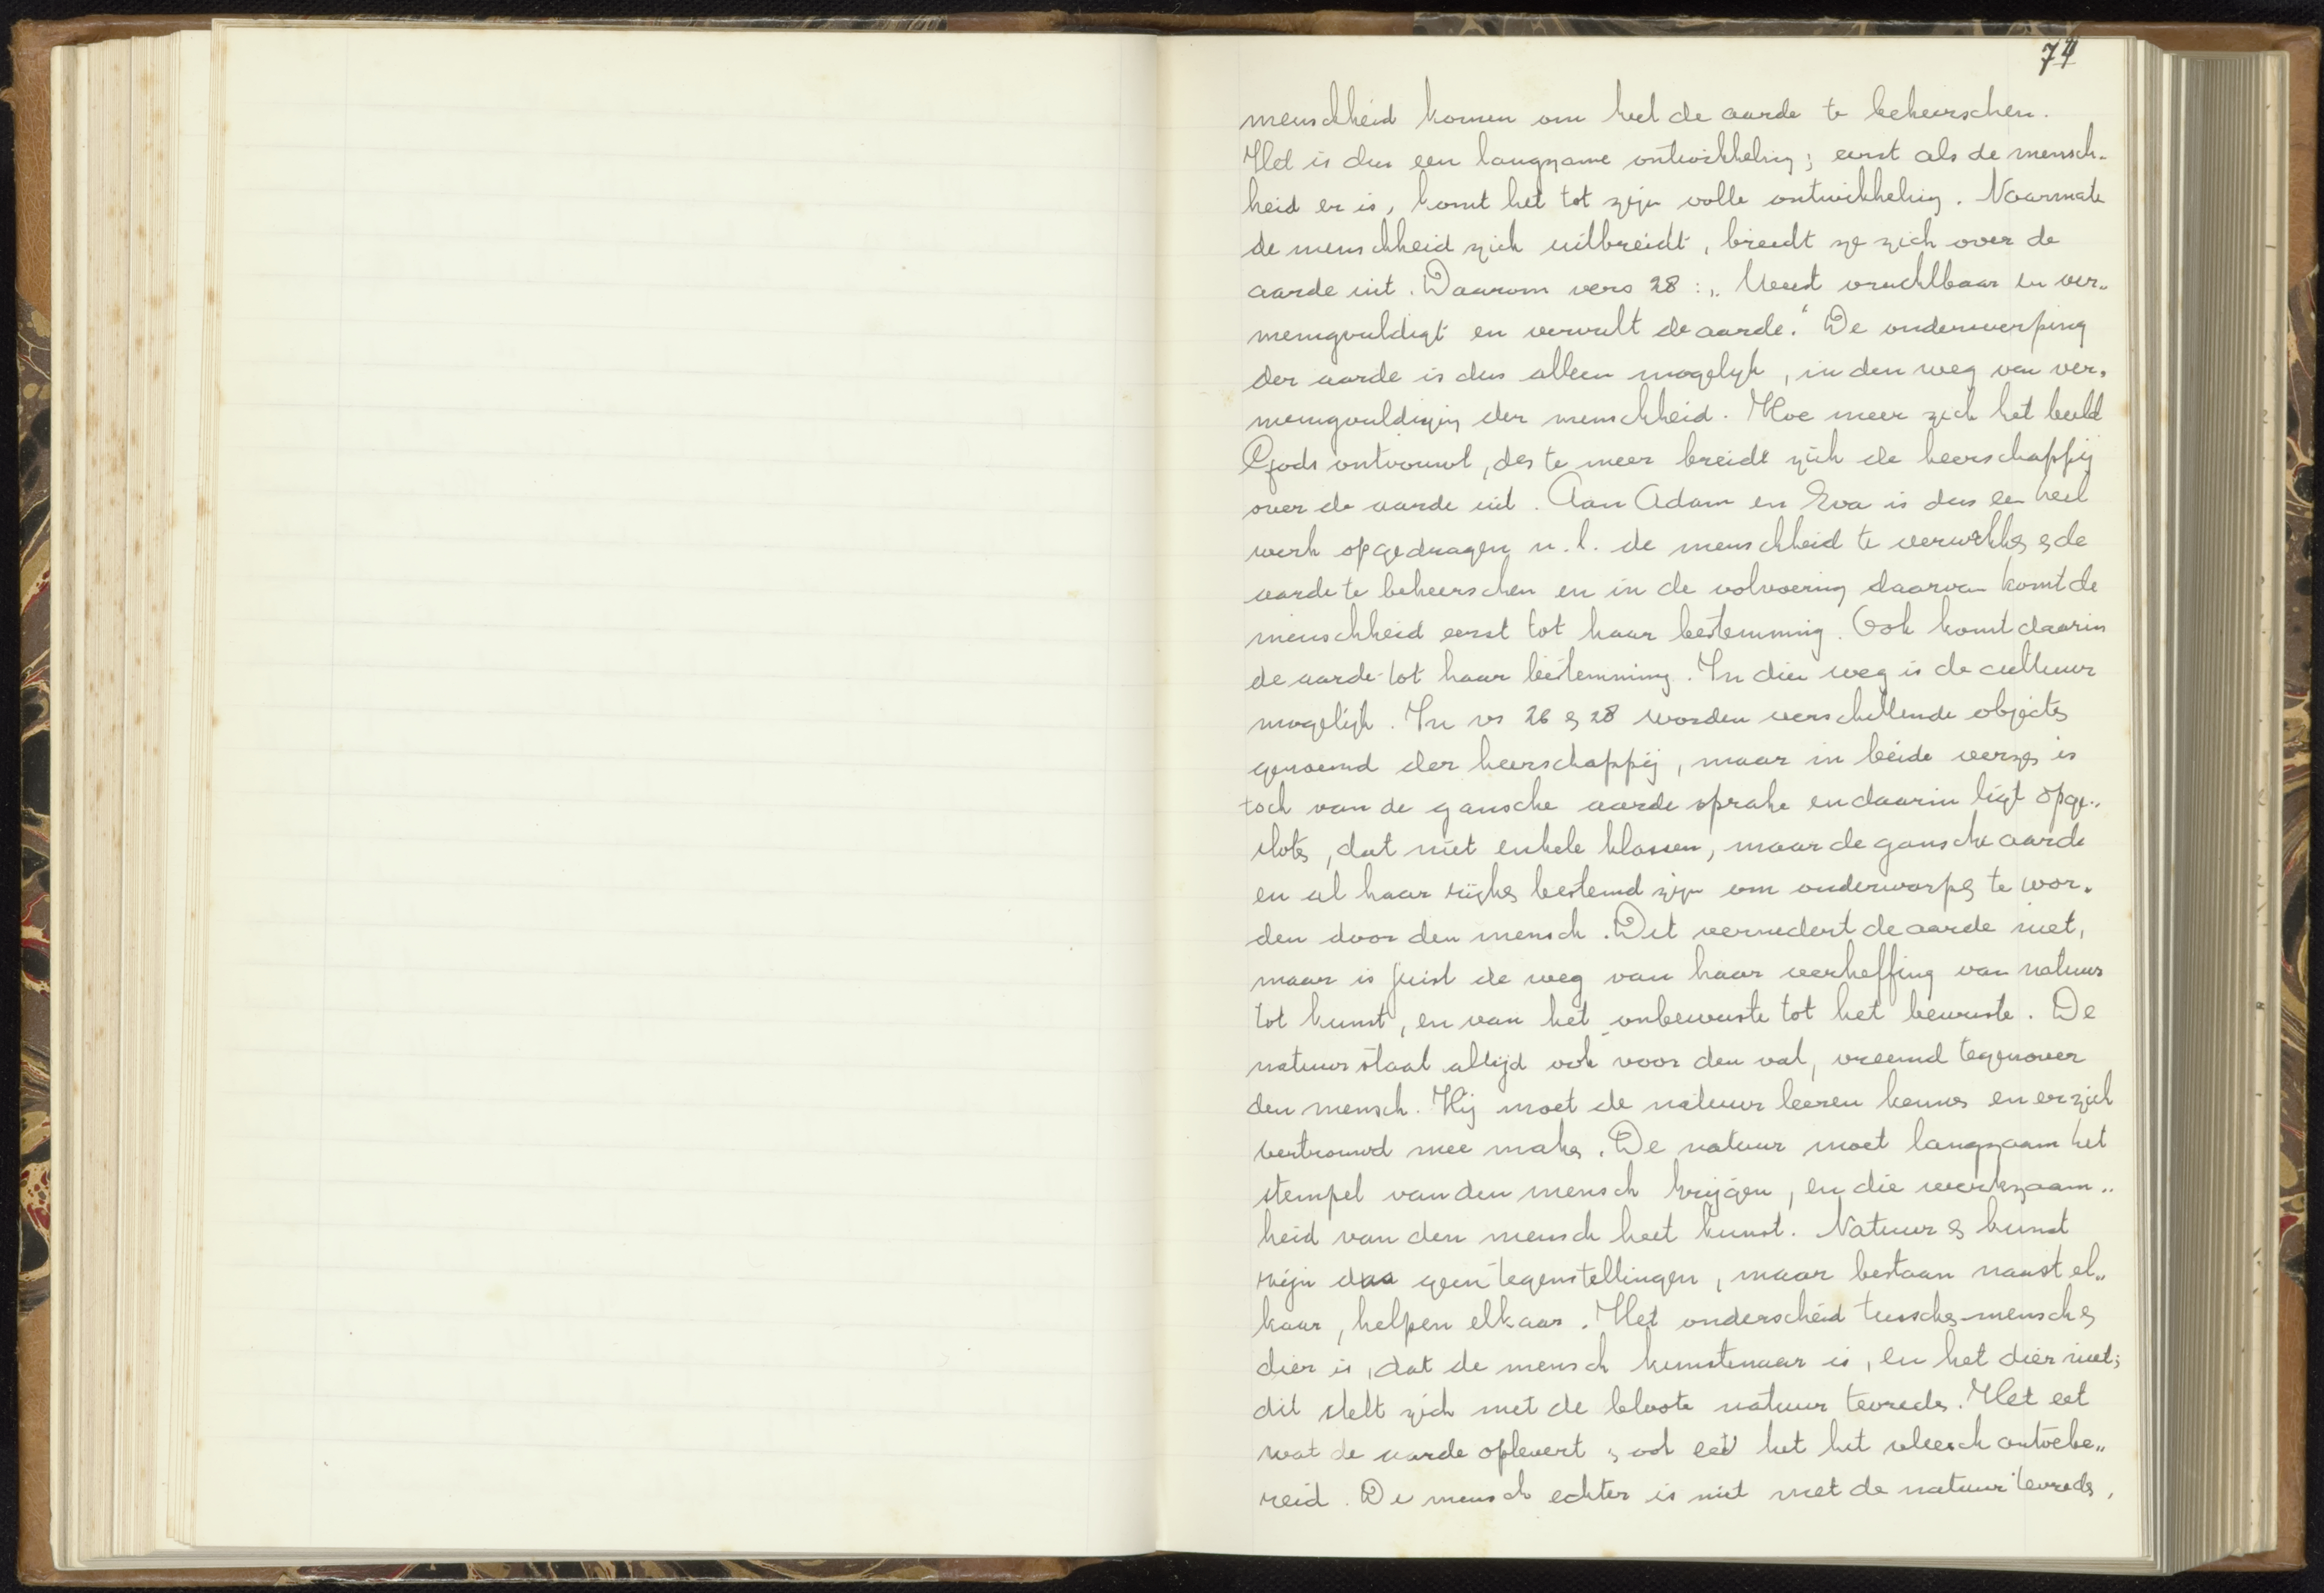 74
menschheid komen om heel de aarde te beheerschen.
Het is dus een langzame ontwikkeling; eerst als de mensch-
heid er is, komt het tot zijn volle ontwikkeling. Naarmate
de menschheid zich uitbreidt, breidt ze zich over de
aarde uit. Daarom vers 28: „Weest vruchtbaar en ver-
menigvuldigt en vervult de aarde.“ De onderwerping
der aarde is dus alleen mogelijk, in den weg van ver-
menigvuldiging der menschheid. Hoe meer zich het beeld
Gods ontvouwt, des te meer breidt zich de heerschappij
over de aarde uit. Aan Adam en Eva is dus een heel
werk opgedragen n.l. de menschheid te verwekken en de
aarde te beheerschen en in de volvoering daarvan komt de
menschheid eerst tot haar bestemming. Ook komt daarin
de aarde tot haar bestemming. In dien weg is de cultuur
mogelijk. In vs 26 en 28 worden verschillende objecten
genoemd der heerschappij, maar in beide verzen is
toch van de gansche aarde sprake en daarin ligt opge-
sloten, dat niet enkele klassen, maar de gansche aarde
en al haar rijken bestemd zijn om onderworpen te wor-
den door den mensch. Dit vernedert de aarde niet,
maar is juist de weg van haar verheffing van natuur
tot kunst, en van het onbewuste tot het bewuste. De
natuur staat altijd ook voor den val, vreemd tegenover
den mensch. Hij moet de natuur leeren kennen en er zich
vertrouwd mee maken. De natuur moet langzaam het
stempel van den mensch krijgen, en die werkzaam-
heid van den mensch heet kunst. Natuur en kunst
zijn dus geen tegenstellingen, maar bestaan naast el-
kaar, helpen elkaar. Het onderscheid tusschen mensch en
dier is, dat de mensch kunstenaar is, en het dier niet;
dit stelt zich met de bloote natuur tevreden. Het eet
wat de aarde oplevert en ook eet het het vleesch ontoebe-
reid. De mensch echter is niet met de natuur tevreden,